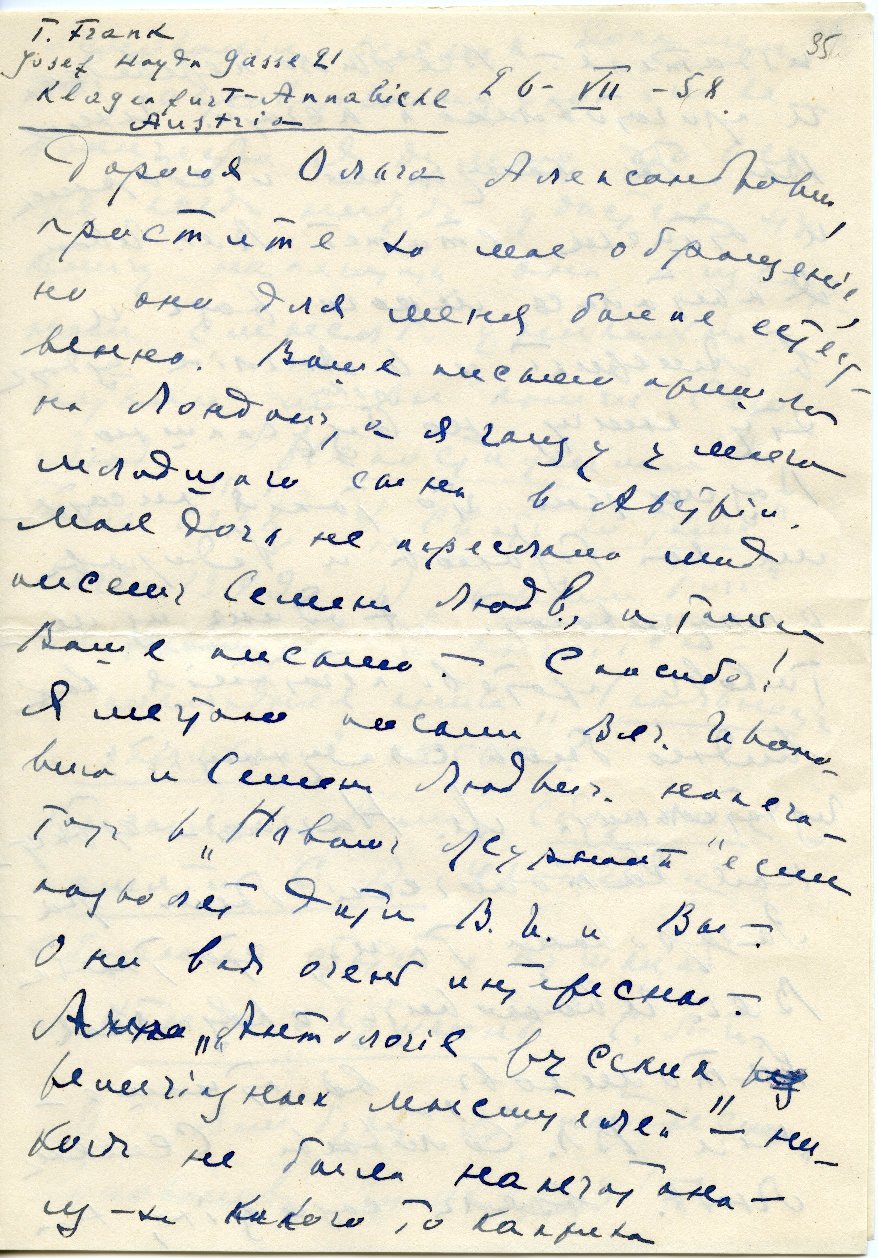 35
T. Frank
Josef Haydn Gasse 21
Klagenfurt-Annabichl
Austria
26 - VII - 58.
Дорогая Ольга Александровна,
простите за мое обращеніе,
но оно для меня более естест-
венно. Ваше письмо пришло
на Лондон, а я гощу у моего
младшаго сына в Австріи.
Моя дочь не переслала
писем Семена Людв., а только
Ваше письмо — Спасибо!
Я мечтаю письма Вяч. Ивано-
вича и Семена Людвиг. напеча-
тать в „Новом Журнале" если
позволят дети В. И. и Вы —
Они ведь очень интересны —
„Антологія русских
религіозных мыслителей" — ни-
когда не была напечатана —
из-за какого то каприза